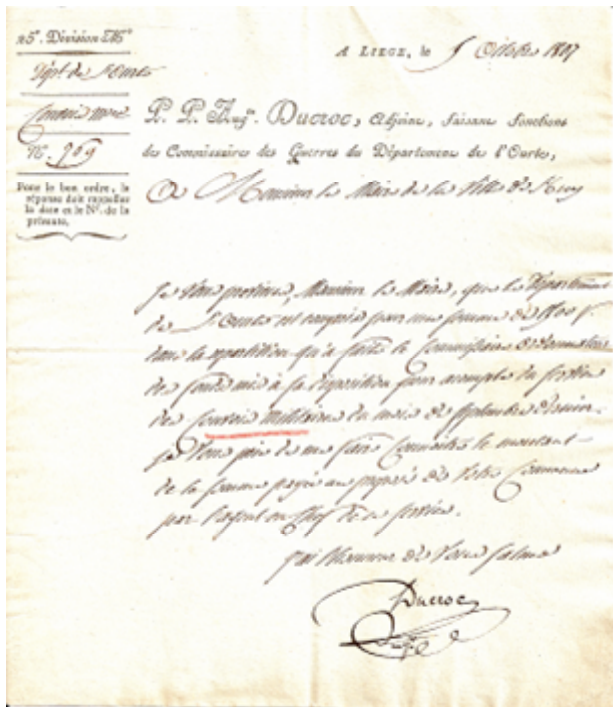 25e. Division Mre
Dépt. de l'Ourte
Convois Mres
No. 969
Pour le bon ordre, la
réponse doit rappeller
la date et le No. de la
présente.
A LIEGE, le 5 Octobre 1807
P. P. Aug.n Ducroc, Adjoint, faisant fonctions
de Commissaire des Guerres du Département de l'Ourte,
A Monsieur le Maire de la Ville de Huy
Je Vous préviens, Monsieur le Maire, que le Département
de l'Ourte est compris pour une somme de
dans la répartition qu'a faite le Commissaire Ordonnateur
des fonds mis à sa disposition pour acompte du service
des Convois Militaires du mois de Septembre dernier.
Je Vous prie de me faire Connaître le montant
de la somme payée au préposé de Votre Commune
par l'agent en Chef de ce service.
J'ai l'honneur de Vous saluer
Ducroc